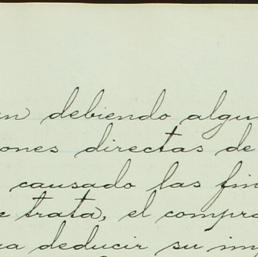 en debiendo algu
ones directas de
causado las fin
e trata, el compra
ra deducir su im